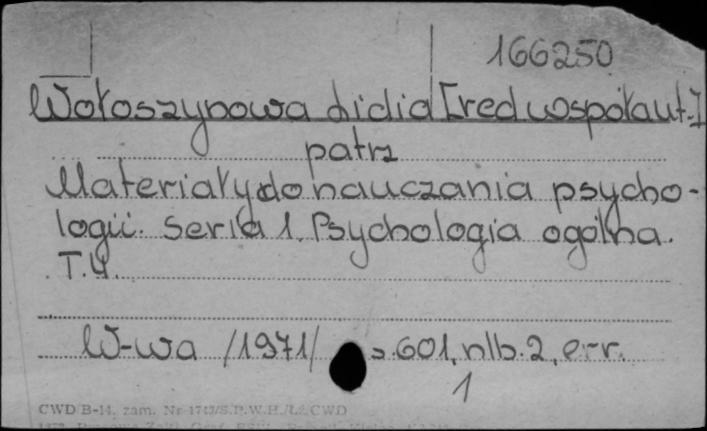 166250
Wołoszynowa Lidia [red współaut.]
patrz
Materiały do nauczania psycho-
logii. Seria 1. Psychologia ogólna.
T.4.
W-wa /1971/ s.601, nlb.2, err.
1
CWD B-14, zam. Nr